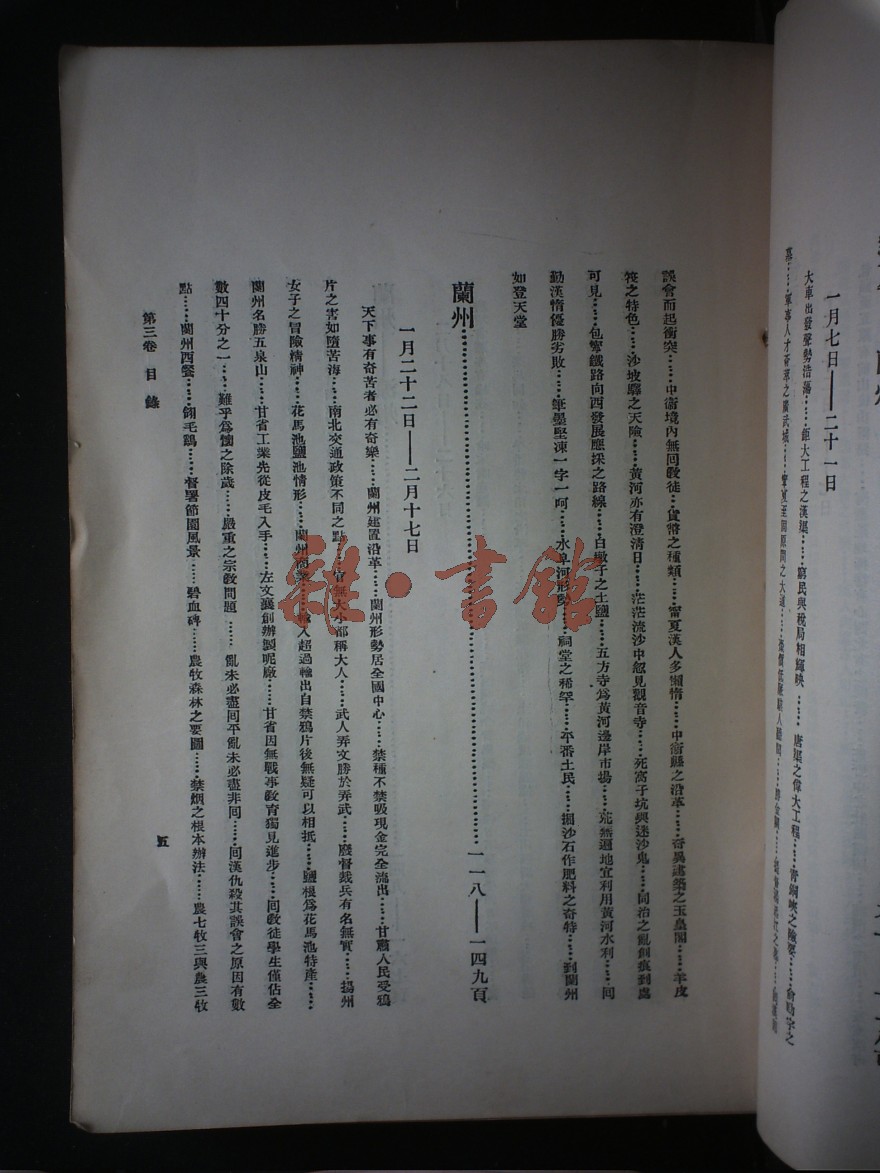 一月七日——二十一日
大車出發聲勢浩蕩……鉅大工程之漢渠……窮民與稅局相輝映……唐渠之偉大工程……青銅峽之險要……
誤會而起衝突……中衛境內無回敎徒……貨幣之種類……甯夏漢人多懶惰……中衛縣之沿革……奇異建築之玉皇閣……羊皮
筏之特色……沙坡驛之天險……黃河亦有澄清日……茫茫流沙中忽見觀音寺……死窩子坑與迷沙鬼……同治之亂創痕到處
可見……包甯鐵路向西發展應採之路線……白墩子之土鹽……五方寺爲黃河邊岸市場……荒無遍地宜利用黃河水利……同
勤漢惰優勝劣敗……筆墨堅凍一字一呵……水阜河形勢……祠堂之稀罕……平番土民……捆沙石作肥料之奇特……到蘭州
如登天堂
蘭州……一一八——一四九頁
一月二十二日——二月十七日
天下事有奇苦者必有奇樂……蘭州建置沿革……蘭州形勢居全國中心……禁種不禁吸現金完全流出……甘肅人民受鴉
片之害如墮苦海……南北交通政策不同之點……官無大小都稱大人……武人弄文勝於弄武……廢督裁兵有名無實……揚州
女子之冒險精神……花馬池鹽池情形……蘭州商業……輸入超過輸出自禁鴉片後無疑可以相抵……鹽根爲花馬池特產……
蘭州名勝五泉山……甘省工業先從皮毛入手……左文襄創辦製呢廠……甘省因無戰事敎育獨見進步……回敎徒學生僅佔全
數四十分之一……難乎爲懷之除歲……嚴重之宗敎問題……亂未必盡回平亂未必盡非回……回漢仇殺其誤會之原因有數
點……蘭州西餐……翎毛鷄……督署節園風景……碧血碑……農牧森林之要圖……禁烟之根本辦法……農七牧三與農三牧
第三卷 目錄
五
雜·書館